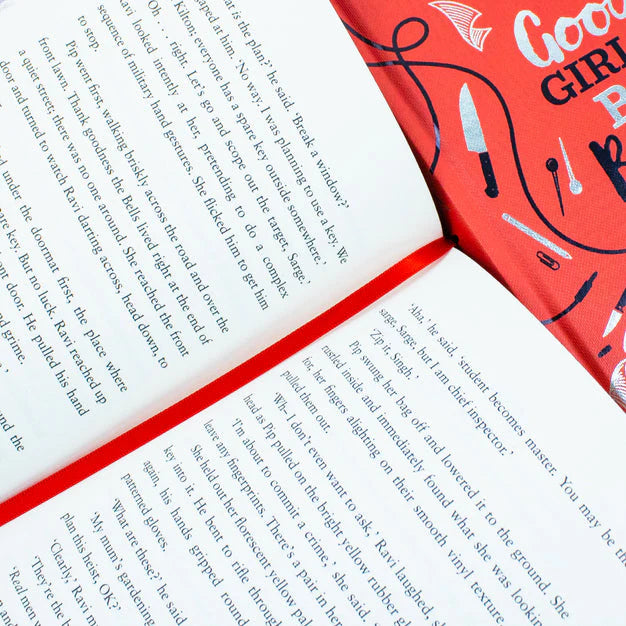 is the plan?' he said. 'Break a window?'
at him. 'No way. I was planning to use a key. We
Kilton; everyone has a spare key outside somewhere.'
Oh . . . right. Let's go and scope out the target, Sarge.'
looked intently at her, pretending to do a complex
sequence of military hand gestures. She flicked him to get him
to stop.
Pip went first, walking briskly across the road and over the
front lawn. Thank goodness the Bells lived right at the end of
a quiet street; there was no one around. She reached the front
door and turned to watch Ravi darting across, head down, to
under the doormat first, the place where
key. But no luck. Ravi reached up
door. He pulled his hand
grime.
and the
'Aha,' he said, 'student becomes master. You may be the
sarge, Sarge, but I am chief inspector.'
'Zip it, Singh.'
Pip swung her bag off and lowered it to the ground. She
rustled inside and immediately found what she was looking
for, her fingers alighting on their smooth vinyl texture.
pulled them out.
'Wh– I don't even want to ask,' Ravi laughed,
head as Pip pulled on the bright yellow rubber
'I'm about to commit a crime,' she said.
leave any fingerprints. There's a pair in
She held out her florescent yellow
key into it. He bent to rifle through
again, his hands gripped round
patterned gloves.
'What are these?' he said
'My mum's gardening
plan this heist, OK?'
'Clearly,' Ravi
'They're the
'Real men
GIRL